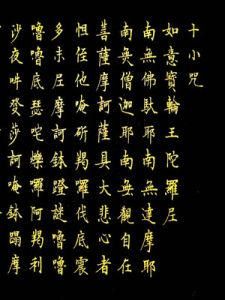 十小咒
如意寶輪王陀羅尼
南無佛馱耶南無達摩耶
南無僧迦耶南無觀自在
菩薩摩訶薩具大悲心者
怛侄他唵斫羯囉伐底震
多末尼摩訶缽蹬謎嚕嚕
嚕底瑟吒爍囉阿羯利
沙夜吽癹莎訶唵缽蹋摩